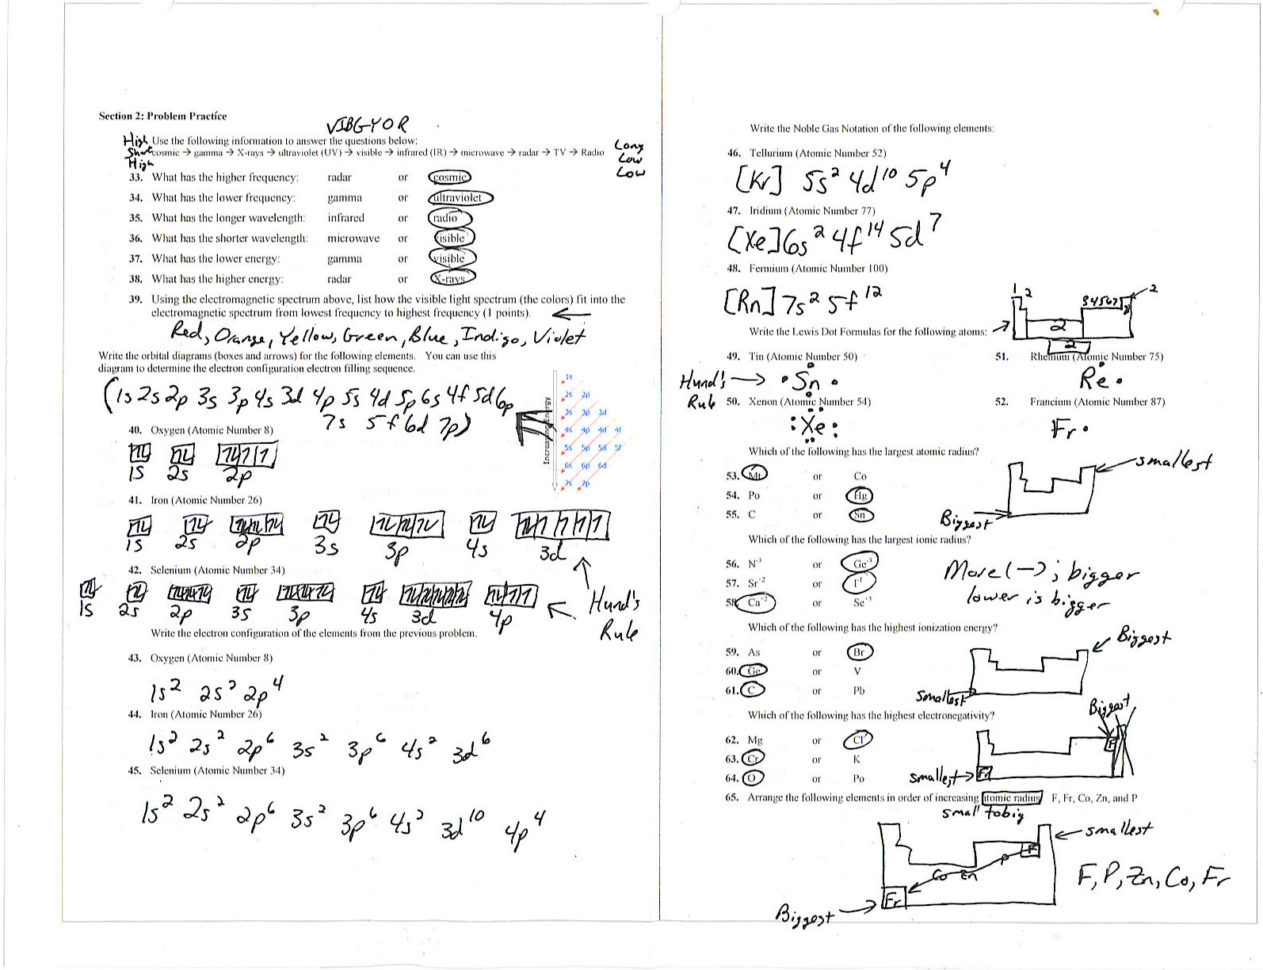 Section 2: Problem Practice
VIBGYOR
High Use the following information to answer the questions below:
Short cosmic → gamma → X-rays → ultraviolet (UV) → visible → infrared (IR) → microwave → radar → TV → Radio
High
Long
Low
Low
33. What has the higher frequency: radar or cosmic
34. What has the lower frequency: gamma or ultraviolet
35. What has the longer wavelength: infrared or radio
36. What has the shorter wavelength: microwave or visible
37. What has the lower energy: gamma or visible
38. What has the higher energy: radar or X-rays
39. Using the electromagnetic spectrum above, list how the visible light spectrum (the colors) fit into the
electromagnetic spectrum from lowest frequency to highest frequency (1 points).
Red, Orange, Yellow, Green, Blue, Indigo, Violet
Write the orbital diagrams (boxes and arrows) for the following elements. You can use this
diagram to determine the electron configuration electron filling sequence.
(1s 2s 2p 3s 3p 4s 3d 4p 5s 4d 5p 6s 4f 5d 6p
7s 5f 6d 7p)
1s
2s 2p
3s 3p 3d
4s 4p 4d 4f
5s 5p 5d 5f
6s 6p 6d
7s 7p
40. Oxygen (Atomic Number 8)
1s 2s 2p
41. Iron (Atomic Number 26)
1s 2s 2p 3s 3p 4s 3d
42. Selenium (Atomic Number 34)
1s 2s 2p 3s 3p 4s 3d 4p
Hund's
Rule
Write the electron configuration of the elements from the previous problem.
43. Oxygen (Atomic Number 8)
1s² 2s² 2p⁴
44. Iron (Atomic Number 26)
1s² 2s² 2p⁶ 3s² 3p⁶ 4s² 3d⁶
45. Selenium (Atomic Number 34)
1s² 2s² 2p⁶ 3s² 3p⁶ 4s² 3d¹⁰ 4p⁴
Write the Noble Gas Notation of the following elements:
46. Tellurium (Atomic Number 52)
[Kr] 5s² 4d¹⁰ 5p⁴
47. Iridium (Atomic Number 77)
[Xe] 6s² 4f¹⁴ 5d⁷
48. Fermium (Atomic Number 100)
[Rn] 7s² 5f¹²
1 2 3 4 5 6 7 8 2
2
2
Write the Lewis Dot Formulas for the following atoms:
49. Tin (Atomic Number 50)
51. Rhenium (Atomic Number 75)
Hund's → Sn
Rule
Re
50. Xenon (Atomic Number 54)
52. Francium (Atomic Number 87)
Xe
Fr
Which of the following has the largest atomic radius?
53. Mt or Co
54. Po or Hg
55. C or Sn
smallest
Biggest
Which of the following has the largest ionic radius?
56. N⁻³ or Ge⁻³
57. Sr⁺² or I⁻¹
58. Ca⁺² or Se⁺³
More (-); bigger
lower is bigger
Which of the following has the highest ionization energy?
59. As or Br
60. Ge or V
61. C or Pb
Biggest
Smallest
Which of the following has the highest electronegativity?
62. Mg or Cl
63. Cr or K
64. O or Po
Biggest
F
smallest → Fr
65. Arrange the following elements in order of increasing atomic radius F, Fr, Co, Zn, and P
small to big
smallest
Co Zn P F
Fr
Biggest
F, P, Zn, Co, Fr